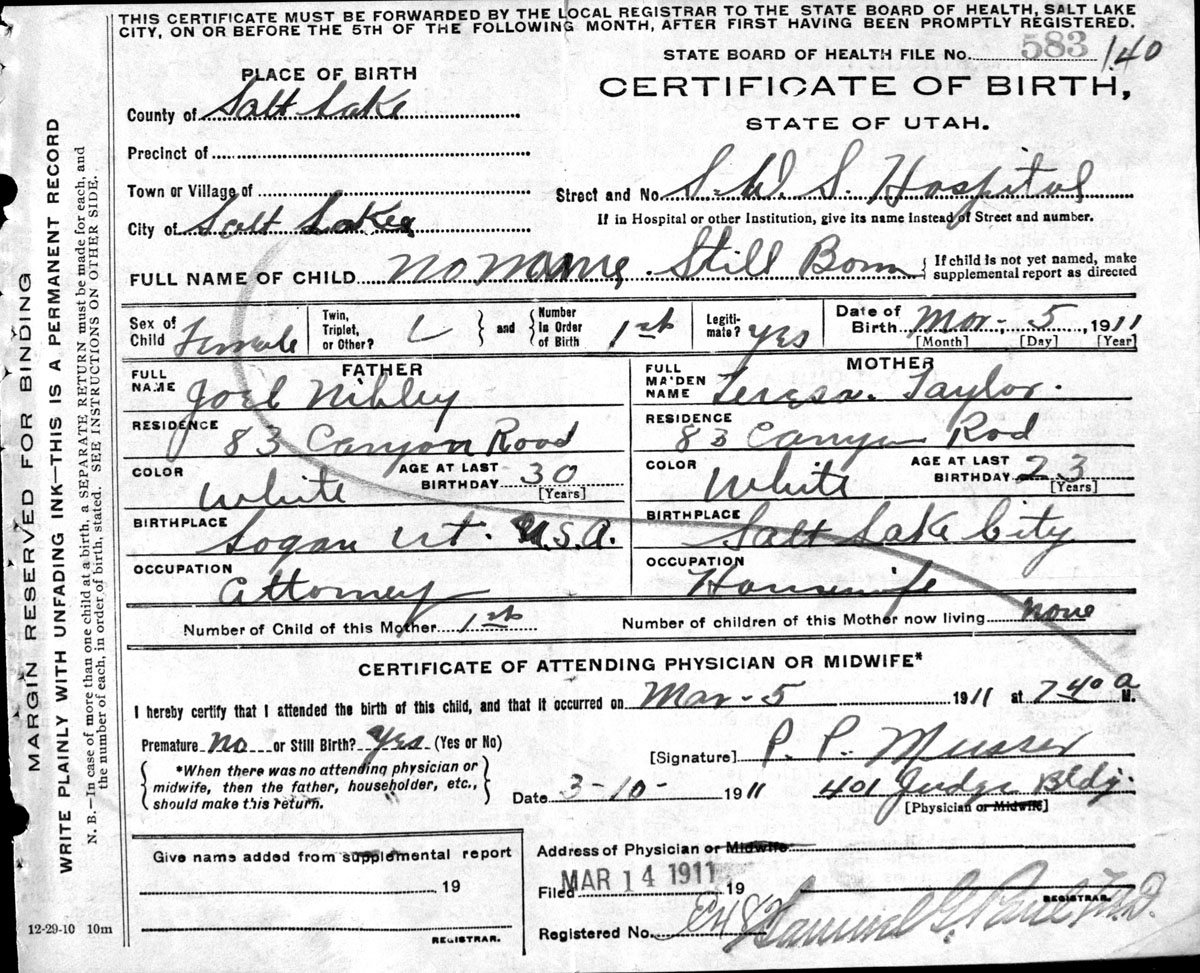 THIS CERTIFICATE MUST BE FORWARDED BY THE LOCAL REGISTRAR TO THE STATE BOARD OF HEALTH, SALT LAKE
CITY, ON OR BEFORE THE 5TH OF THE FOLLOWING MONTH, AFTER FIRST HAVING BEEN PROMPTLY REGISTERED.
STATE BOARD OF HEALTH FILE No. 583 140
PLACE OF BIRTH
CERTIFICATE OF BIRTH,
STATE OF UTAH.
County of Salt Lake
Precinct of
Town or Village of
Street and No. S. W. S. Hospital
City of Salt Lake
If in Hospital or other Institution, give its name instead of Street and number.
FULL NAME OF CHILD No Name, Still Born { If child is not yet named, make supplemental report as directed
Sex of Child Female Twin, Triplet, or Other? } and { Number in Order of Birth 1st Legiti-mate? yes Date of Birth Mar. 5, 1911
[Month] [Day] [Year]
FATHER MOTHER
FULL NAME Joel Nibley FULL MAIDEN NAME Teresa Taylor.
RESIDENCE 83 Canyon Road RESIDENCE 83 Canyon Rod
COLOR White AGE AT LAST BIRTHDAY 30 [Years] COLOR White AGE AT LAST BIRTHDAY 23 [Years]
BIRTHPLACE Logan Ut. U.S.A. BIRTHPLACE Salt Lake City
OCCUPATION Attorney OCCUPATION Housewife
Number of Child of this Mother 1st Number of children of this Mother now living none
CERTIFICATE OF ATTENDING PHYSICIAN OR MIDWIFE*
I hereby certify that I attended the birth of this child, and that it occurred on Mar-5 1911 at 7 40 a M.
Premature no or Still Birth? yes (Yes or No)
[Signature] P. P. Musser
*When there was no attending physician or
midwife, then the father, householder, etc.,
should make this return.
Date 3-10- 1911 401 Judge Bldg.
[Physician or Midwife]
Give name added from supplemental report
19
REGISTRAR.
Address of Physician or Midwife
Filed MAR 14 1911 19
REGISTRAR.
Registered No. Samuel G. Paul M.D.
12-29-10 10m
MARGIN RESERVED FOR BINDING
WRITE PLAINLY WITH UNFADING INK—THIS IS A PERMANENT RECORD
N. B.—In case of more than one child at a birth, a SEPARATE RETURN must be made for each, and
the number of each, in order of birth, stated. SEE INSTRUCTIONS ON OTHER SIDE.